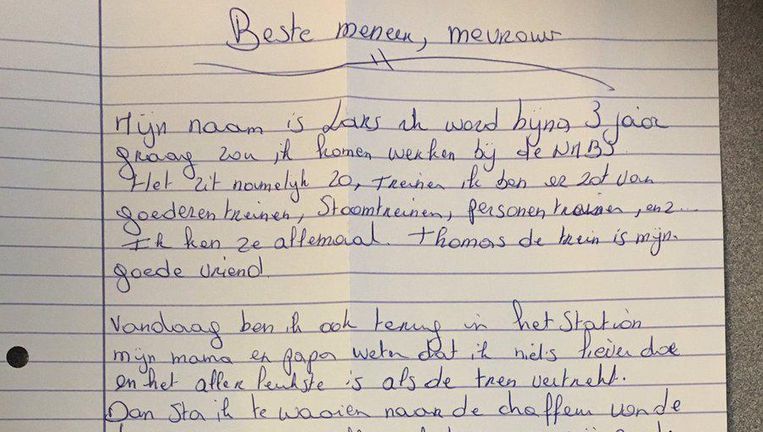 Beste meneer, mevrouw
Mijn naam is Lars ik word bijna 3 jaar
graag zou ik komen werken bij de NMBS
Het zit namelijk zo, treinen ik ben er zot van
goederentreinen, Stoomtreinen, personentreinen, enz...
Ik ken ze allemaal. Thomas de trein is mijn
goede vriend.
Vandaag ben ik ook terug in het Station
mijn mama en papa weten dat ik niets liever doe
en het aller leukste is als de trein vertrekt.
Dan sta ik te waaien naar de chaffeur van de